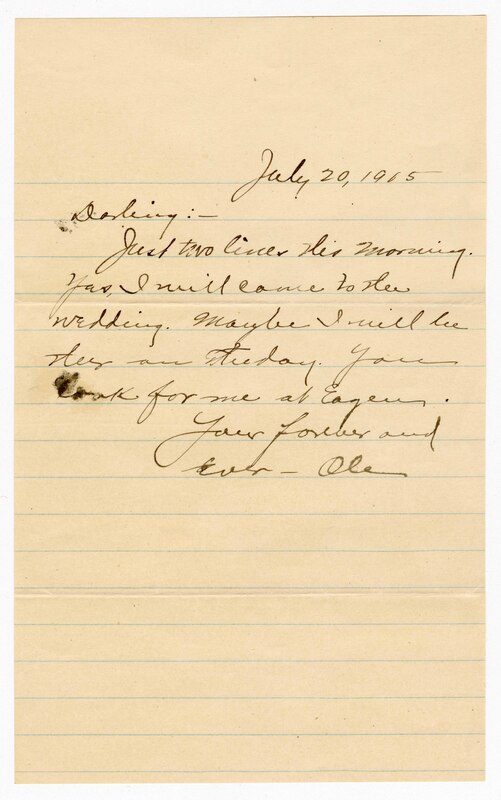 July 20, 1915
Darling:-
Just two lines this morning.
Yes, I will come to the
wedding. Maybe I will be
ther on Thuday. You
look for me at Eagen.
Your forever and
Ever - Ole